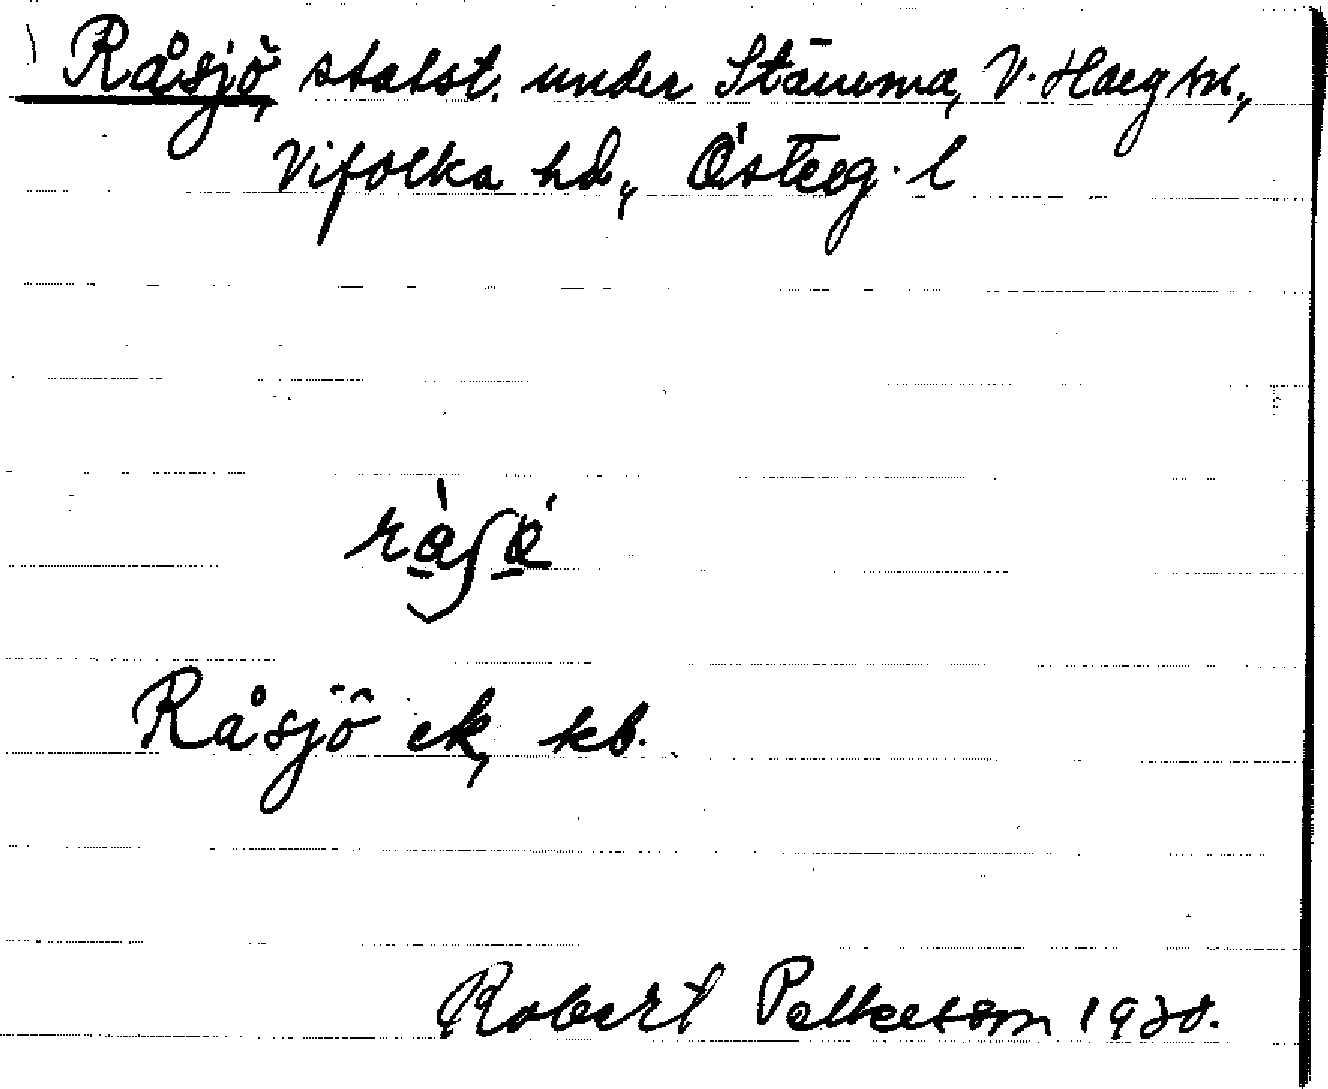 Råsjö, statst. under Stämma, V. Harg sn.,
Vifolka hd., Österg. l
Råsjö ek, kb.
Robert Pettersson